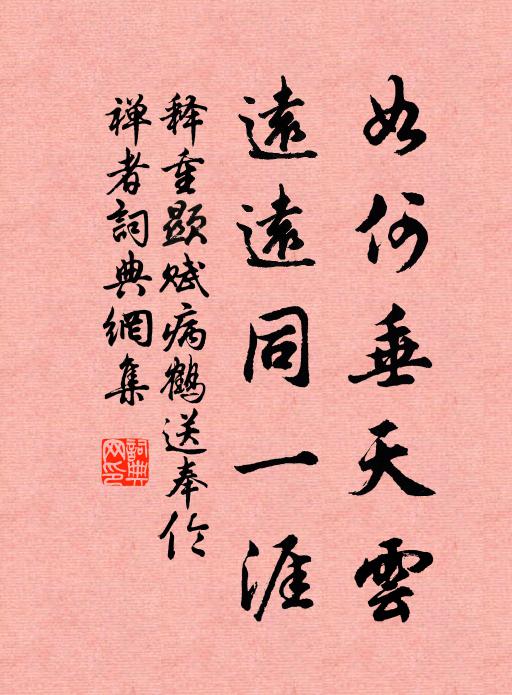 如何垂天雲
遠遠同一涯
释重顯賦病鶴送奉伦
禅者詞典網集
詞典网印